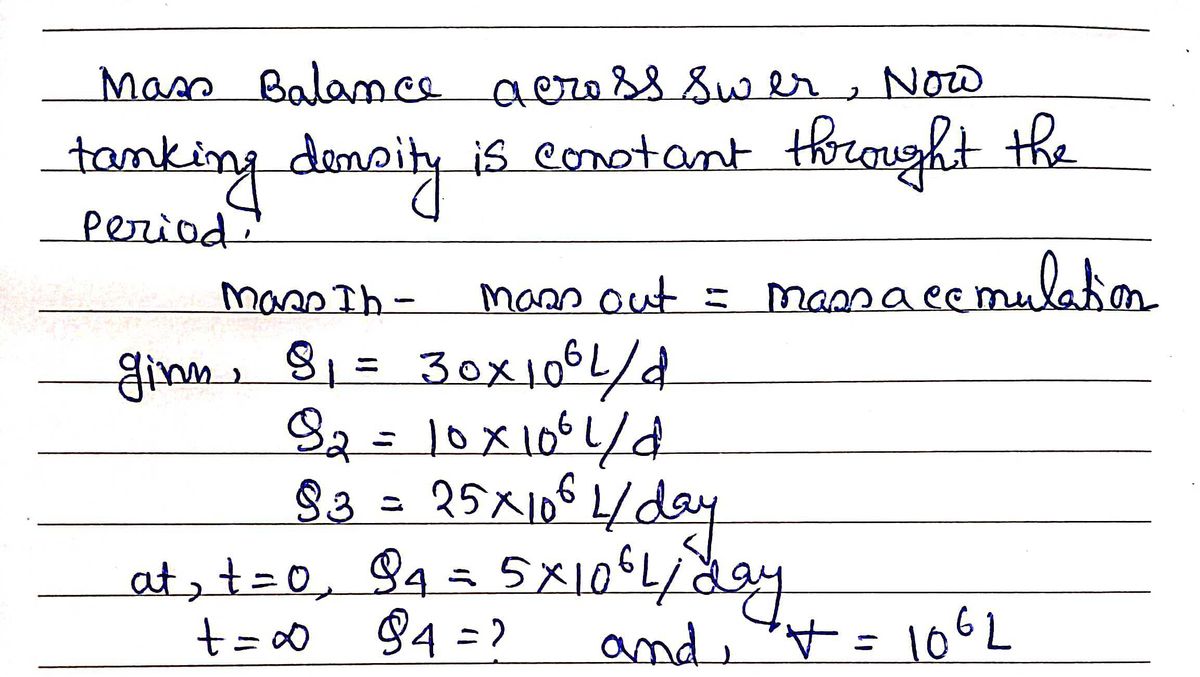 Mass Balance across Swer, Now
tanking density is constant throught the
Period.
Mass In - Mass out = mass accmulation
ginn, Q1 = 30×10⁶ L/d
Q2 = 10×10⁶ L/d
Q3 = 25×10⁶ L/day
at, t=0, Q4 = 5×10⁶ L/day
t=∞ Q4 =? and, V = 10⁶ L